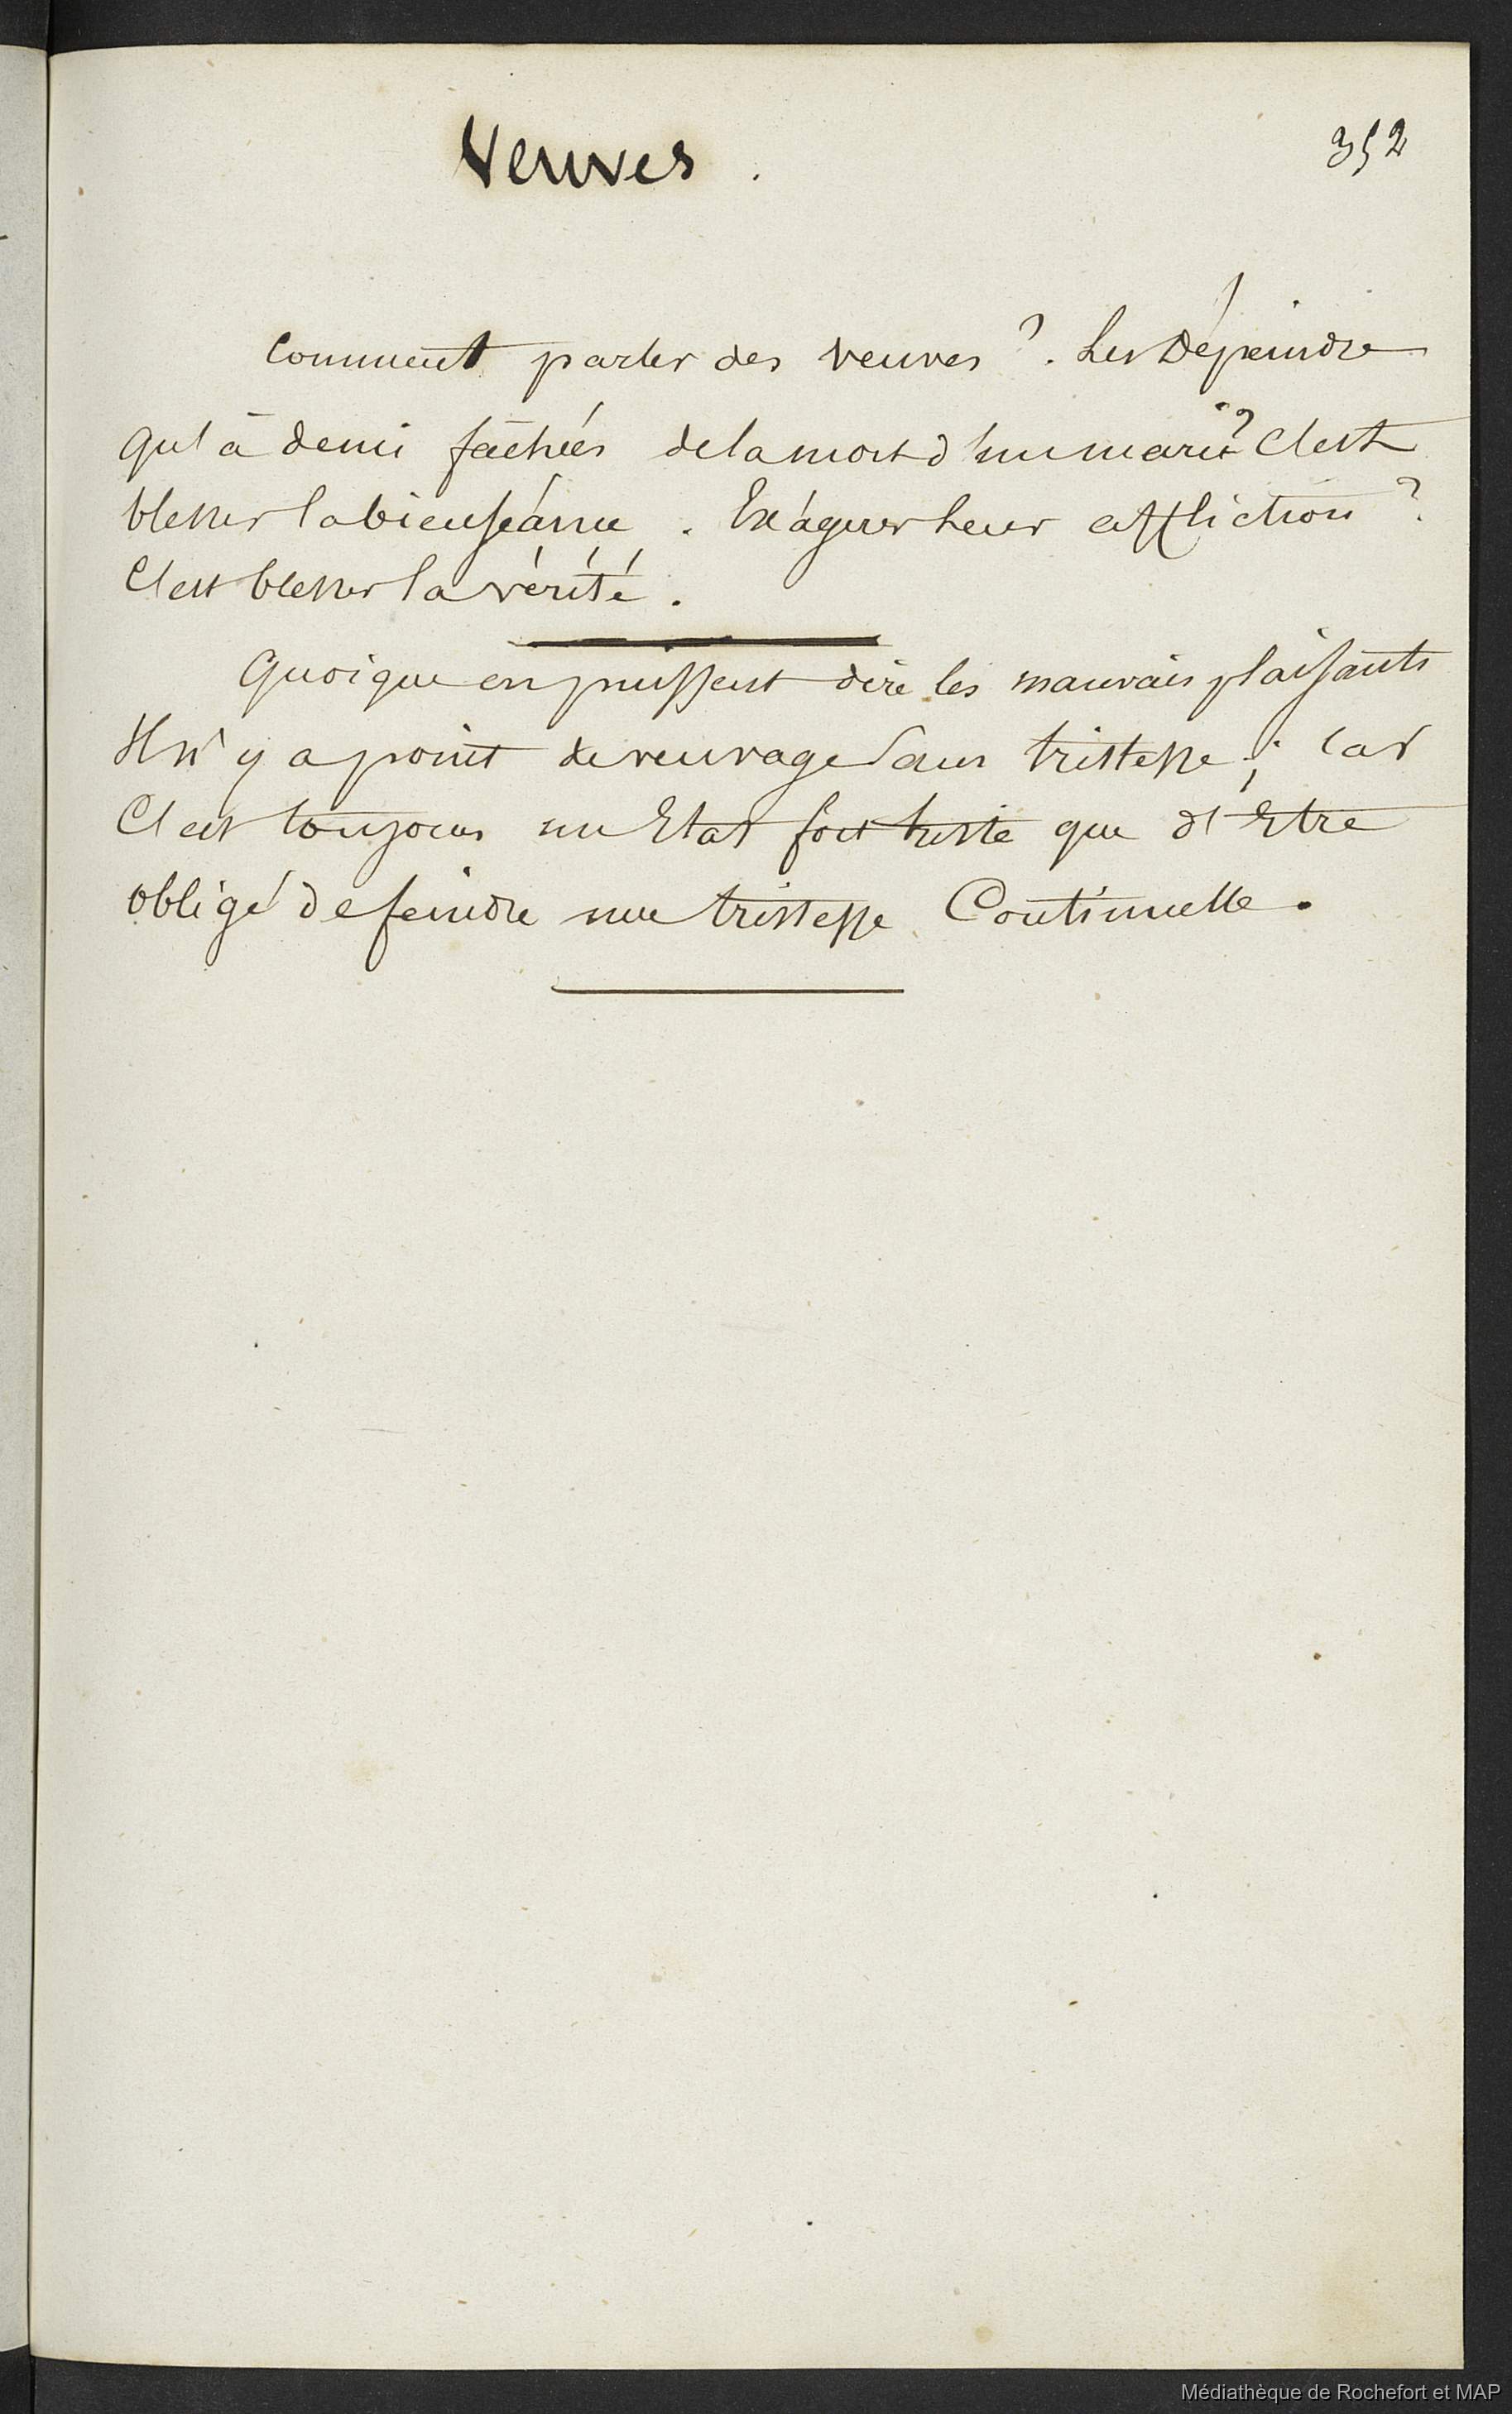 Veuves.
352
Comment parler des veuves ?. Les Dépeindre
qu'à demi fâchées de la mort d'un mari ? C'est
blesser la bienséance. Exagerer leur affliction ?
C'est blesser la vérité.
Quoique en puissent dire les mauvais plaisants
Il n'y a point de veuvage sans tristesse ; Car
C'est toujours un Etat fort triste que d'Etre
obligé de feindre une tristesse Continuelle.
Médiathèque de Rochefort et MAP